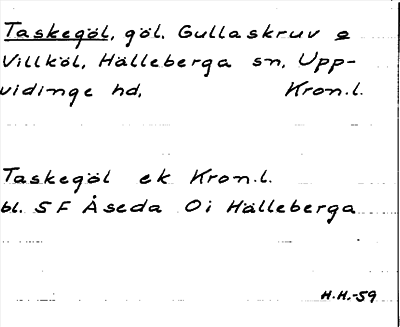 Taskegöl, göl, Gullaskruv o
Villköl, Hälleberga sn, Upp-
vidinge hd, Kron.l.
Taskegöl ek Kron.l.
bl. 5 F Åseda Oi Hälleberga
H.H.-59